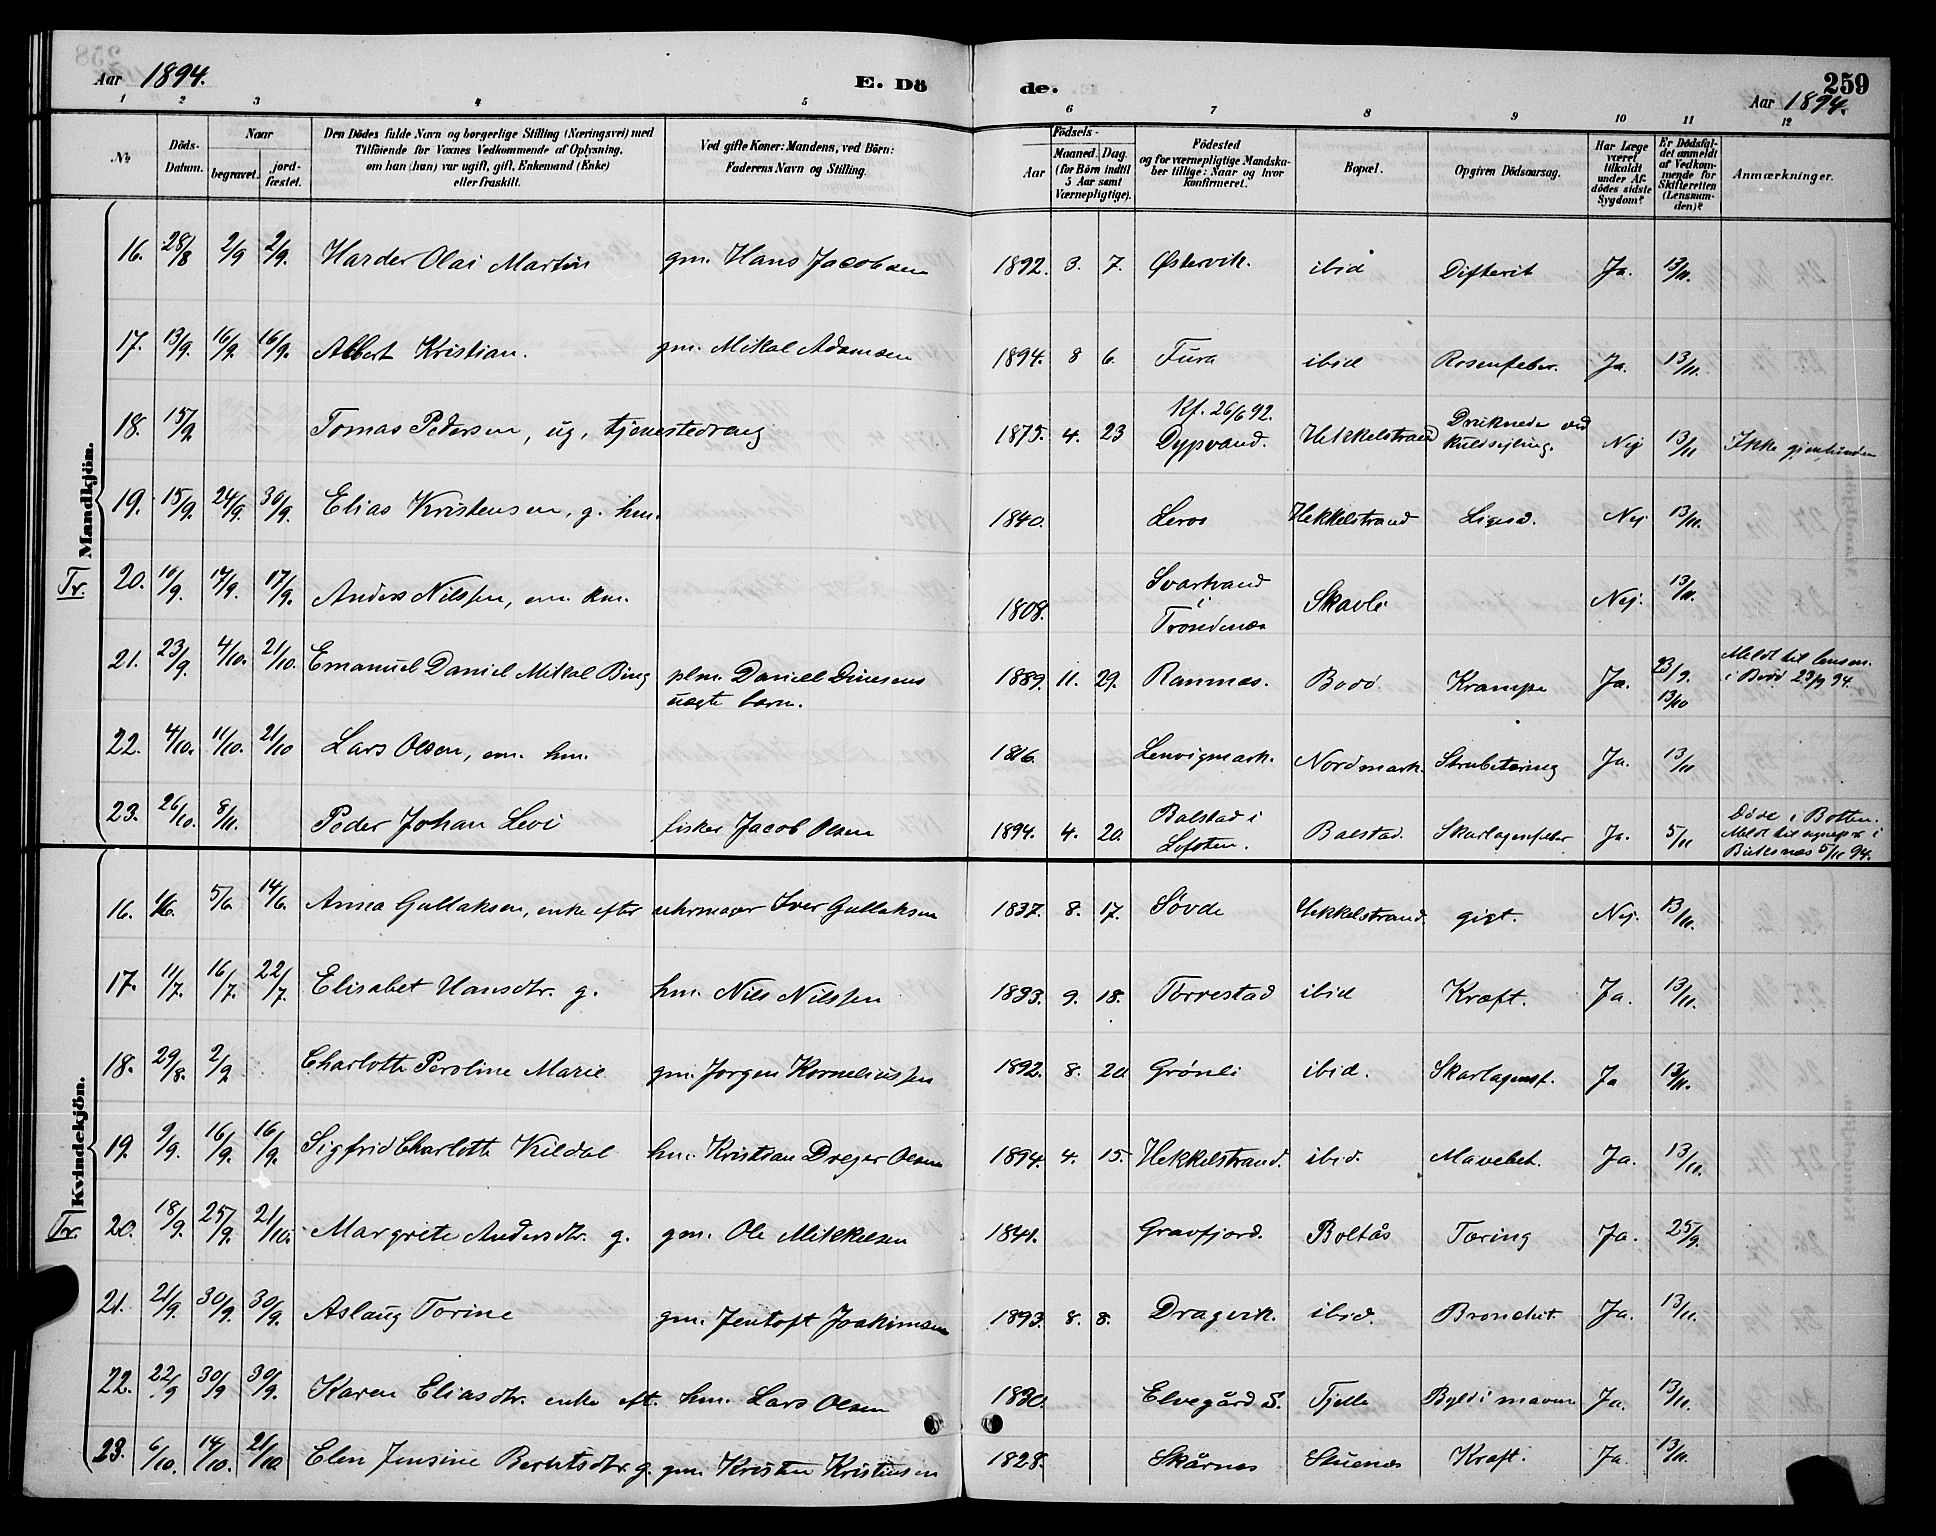 258
Aar 1894.
E. Dö
de.
259
Aar 1894.
1 2 3 4 5 6 7 8 9 10 11 12
No
Döds-Datum.
Naar
begravet.
jord-fæstet.
Den Dödes fulde Navn og borgerlige Stilling (Næringsvei) med
Tilföiende for Voxnes Vedkommende af Oplysning,
om han (hun) var ugift, gift, Enkemand (Enke)
eller fraskilt.
Ved gifte Koner: Mandens, ved Börn:
Faderens Navn og Stilling.
Födsels-
Aar
Maaned.
Dag.
(for Börn indtil
5 Aar samt
Værnepligtige).
Födested
og for værnepligtige Mandska-
ber tillige: Naar og hvor
konfirmeret.
Bopæl.
Opgiven Dödsaarsag.
Har Læge
været
tilkaldt
under Af-
dödes sidste
Sygdom?
Er Dödsfal-
det anmeldt
af Vedkom-
mende for
Skifteretten
(Lensman-
den)?
Anmærkninger.
Mandkjön.
16. 28/8 2/9 2/9. Harder Olai Martin gm. Hans Jacobsen 1892. 3. 7. Østervik. ibid Difterit Ja. 13/11.
17. 13/9. 16/9. 16/9. Albert Kristian. gm. Mikal Adamsen 1894. 8 6. Fura ibid Rosenfeber. Ja. 13/11.
18. 15/9 Tomas Pedersen, ug. tjenestedreng 1875. 4. 23 Kf. 26/6 92. Dypvand. Hekkelstrand Druknede ved kuldsejling. Nej 13/11 Ikke gjenfunden
19. 15/9. 24/9. 30/9. Elias Kristensen, g. hm. 1840. Leros Hekkelstrand Nej 13/11.
Tr. 20. 16/9. 17/9. 17/9. Anders Nilssen, em. km. 1808. Svartvand i Trondenæs Skavli Nej. 13/11.
21. 23/9 4/10. 21/10. Emanuel Daniel Mikal Bing plm. Daniel Dinesens uægte barn. 1889. 11. 29. Ranmæs. Bodø. Krampe Ja. 23/9. 13/10 Meldt til lensm. i Bodø 23/9 94.
22. 4/10. 11/10. 21/10 Lars Olsen, em. hm. 1816. Lenvigmark. Nordmark. Strubetæring Ja. 13/11
23. 26/10. 8/11. Peder Johan Levi fisker Jacob Olsen 1894. 4. 20. Balstad i Lofoten. Balstad. Skarlagensfeber Ja. 5/11 Døde i Botten. Meldt til i Buksnæs 5/11 94.
Kvindekjön.
16. 1/6. 5/6. 14/6. Anna Gullaksen, enke efter uhrmager Iver Gullaksen 1837. 8. 17. Søvde Hekkelstrand. gigt. Nej. 13/11.
17. 11/7. 16/7. 22/7. Elisabet Hansdtr. g. hm. Nils Nilssen 1833. 9. 18. Torrestad ibid Kræft. Ja. 13/11.
18. 29/8. 2/9 Charlotte Peroline Marie gm. Jørgen Korneliussen 1892. 8. 20 Grønli ibid. Skarlagensf. Ja 13/11.
19. 9/9. 16/9. 16/9. Sigfrid Charlotte Kildal hm. Kristian Drejer Olsen 1894. 4. 15. Hekkelstrand. ibid. Mavebet. Ja. 13/11.
Tr. 20. 18/9. 25/9. 21/10. Margrete Andersdtr. g. gm. Ole Mikkelsen 1841. Gravfjord. Boltås Tæring Ja. 25/9.
21. 21/9. 30/9. 30/9. Aslaug Torine gm. Jentoft Joakimsen 1893. 8. 8. Dragvik. ibid. Bronchit. Ja. 13/11.
22. 22/9 30/9 30/9. Karen Eliasdtr. enke eft. hm. Lars Olsen 1830. Elvegård S. Tjelle Byld i maven Ja. 13/11.
23. 6/10. 14/10. 21/10 Elen Jensine Berntsdtr. g. gm. Kristen Kristensen 1828. Skårnes Stuenæs Kræft. Ja. 13/11.